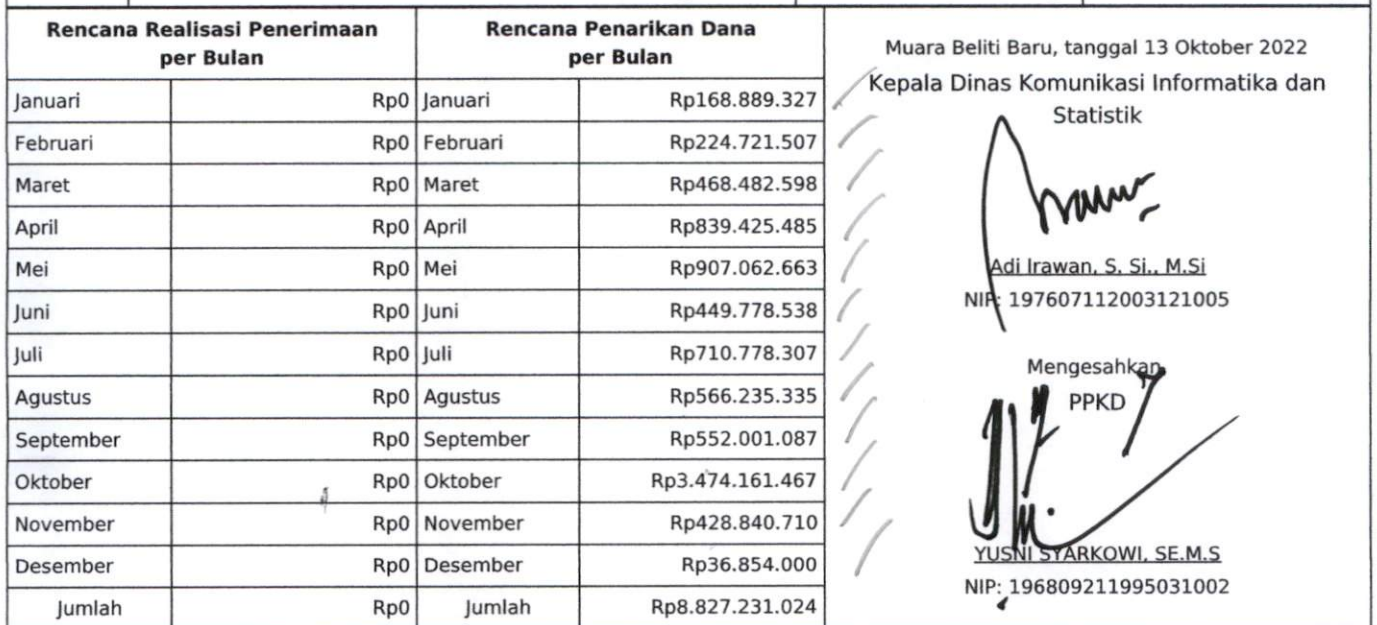 Rencana Realisasi Penerimaan
per Bulan
Rencana Penarikan Dana
per Bulan
Januari Rp0 Januari Rp168.889.327
Februari Rp0 Februari Rp224.721.507
Maret Rp0 Maret Rp468.482.598
April Rp0 April Rp839.425.485
Mei Rp0 Mei Rp907.062.663
Juni Rp0 Juni Rp449.778.538
Juli Rp0 Juli Rp710.778.307
Agustus Rp0 Agustus Rp566.235.335
September Rp0 September Rp552.001.087
Oktober Rp0 Oktober Rp3.474.161.467
November Rp0 November Rp428.840.710
Desember Rp0 Desember Rp36.854.000
Jumlah Rp0 Jumlah Rp8.827.231.024
Muara Beliti Baru, tanggal 13 Oktober 2022
Kepala Dinas Komunikasi Informatika dan
Statistik
Adi Irawan, S. Si., M.Si
NIP: 197607112003121005
Mengesahkan,
PPKD
YUSNI SYARKOWI, SE.M.S
NIP: 196809211995031002